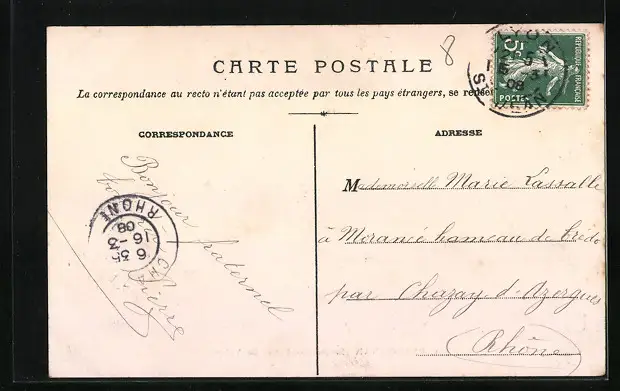 8
CARTE POSTALE
La correspondance au recto n'étant pas acceptée par tous les pays étrangers, se
CORRESPONDANCE
ADRESSE
Bonjour
fraternel
Pierre
RHONE
6 35
16-3
08
LYON
08
5c
REPUBLIQUE FRANÇAISE
POSTES
Mademoiselle Marie Lassalle
à Morancé hameau de
par Chazay d'Azergues
Rhône